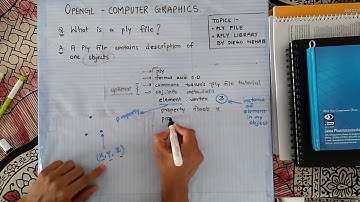 OPENGL - COMPUTER GRAPHICS.
TOPICS :-
• PLY FILE
• RPLY LIBRARY
BY DIEGO NEHAB
Q. What is a ply file?
A. A Ply file contains description of
one objects
ply
format ascii 1.0
optional
comment ply file tutorial
obj_info metadata
element vertex 3
instance of
element in my
object
property
property float x
(x, y, z)